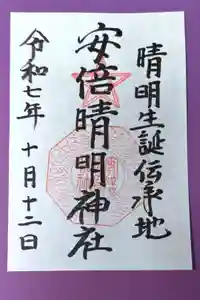 晴明生誕伝承地
安倍晴明神社
令和七年 十月十二日